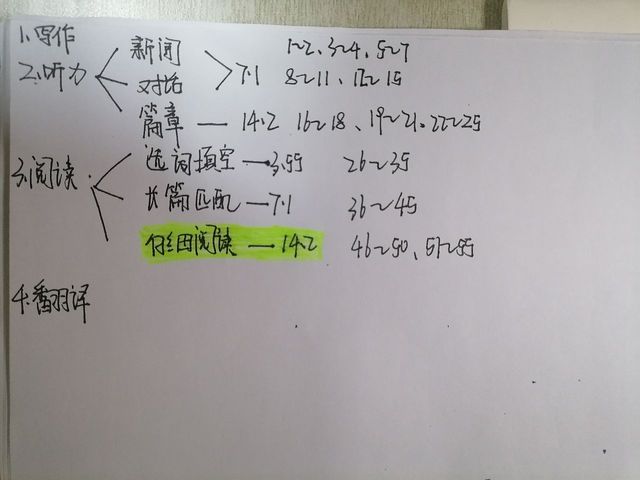 1.写作
2.听力 新闻 1~2、3~4、5~7
对话 7.1 8~11、12~15
篇章 — 14.2 16~18、19~21、22~25
3.阅读 选词填空 — 3.55 26~35
长篇匹配 — 7.1 36~45
仔细阅读 — 14.2 46~50、51~55
4.翻译